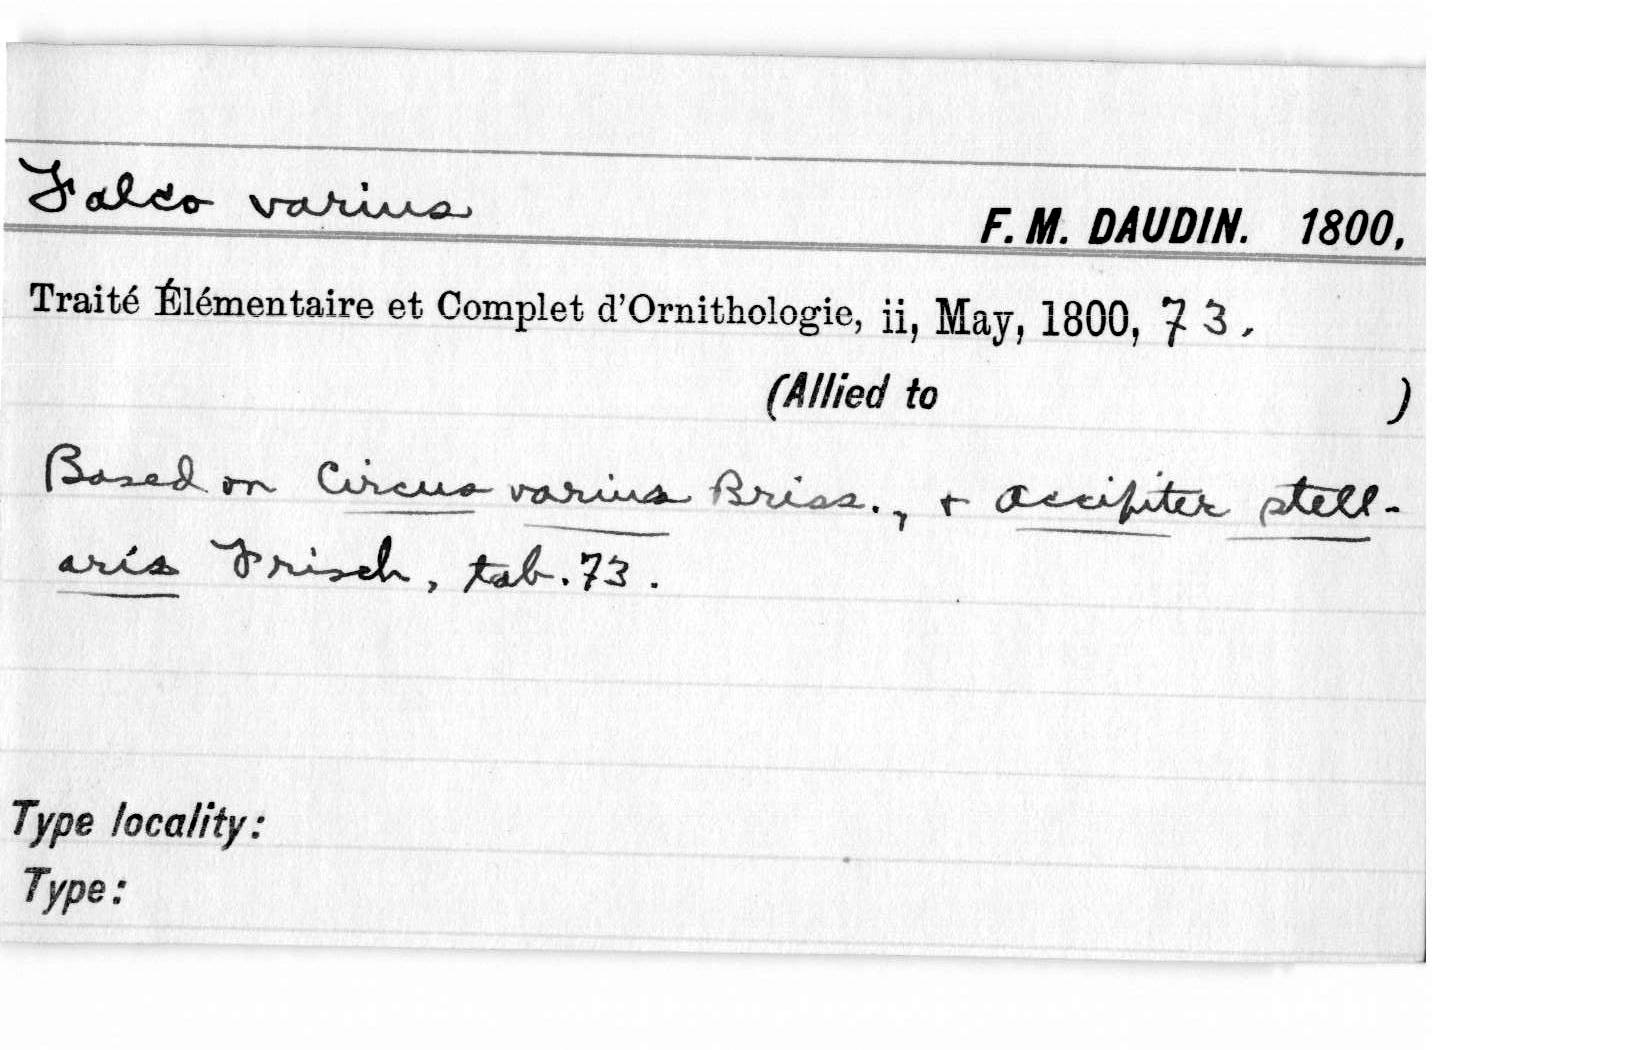 Falco varius F. M. DAUDIN. 1800,
Traité Élémentaire et Complet d'Ornithologie, ii, May, 1800, 73.
(Allied to )
Based on Circus varius Briss., + Accipiter stell-
aris Frisch, tab. 73.
Type locality:
Type: